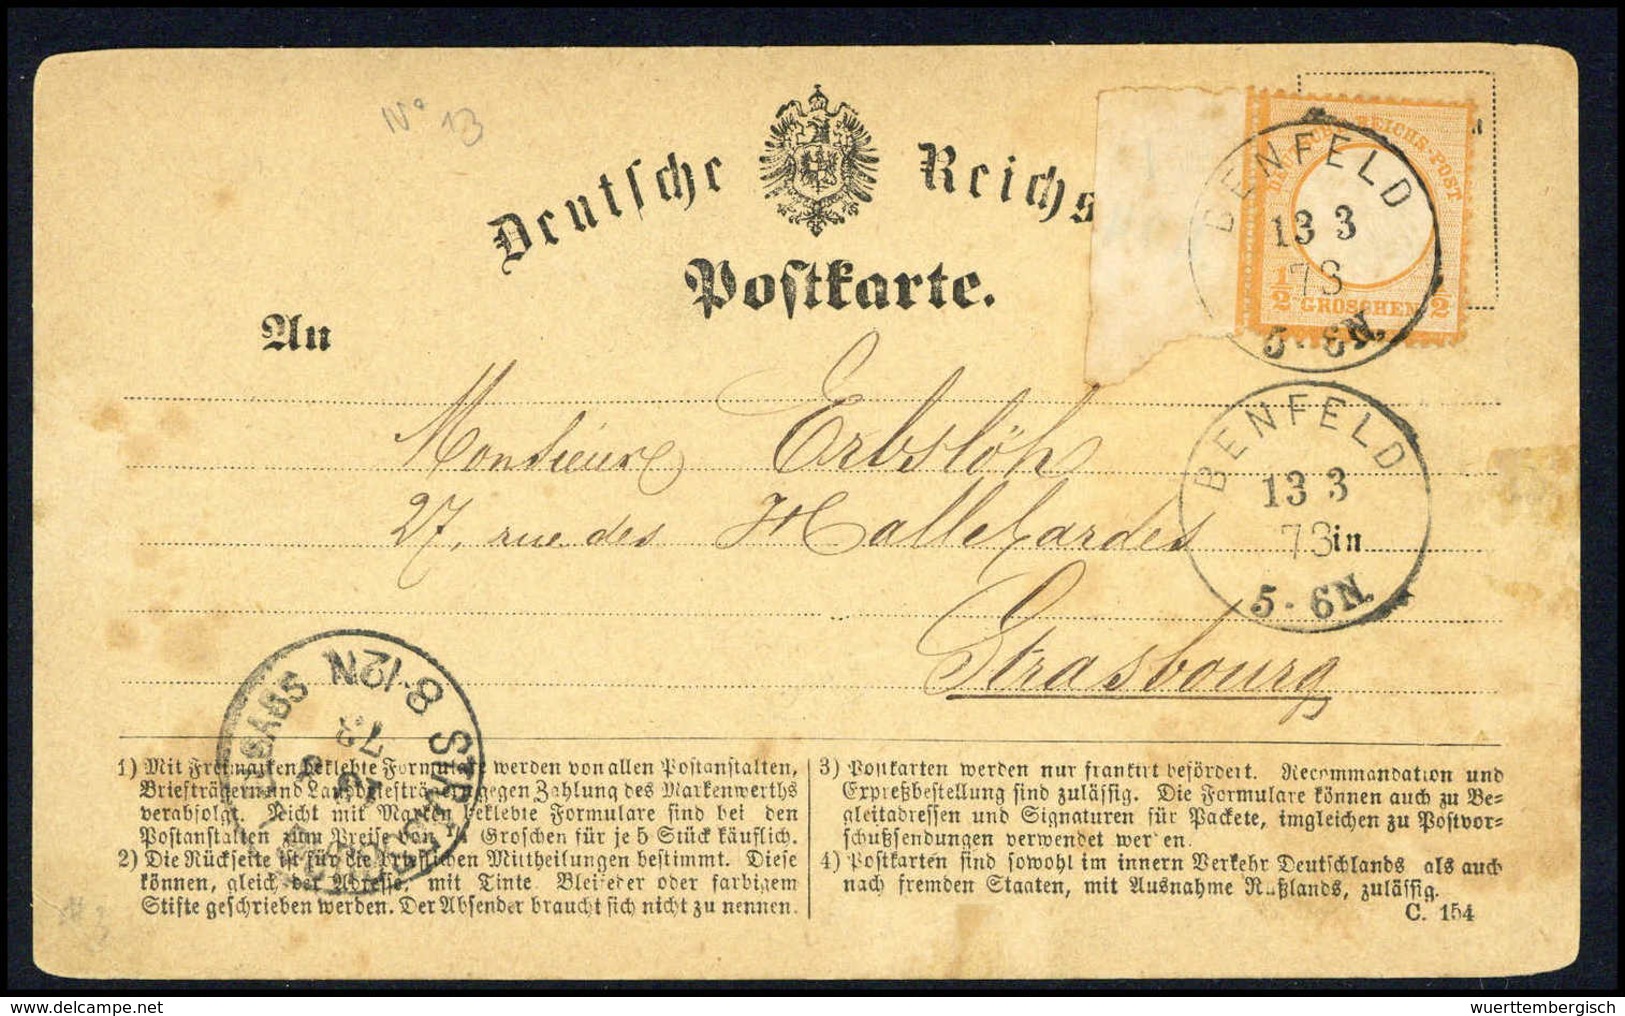 N° 13
Deutsche Reichs
Postkarte.
DEUTSCHE REICHS-POST
1/2 GROSCHEN 1/2
BENFELD
13 3
73
5-6N.
An
Monsieur Erbslöh
BENFELD
13 3
73
5-6N.
27, rue des Hallebardes
in
Strasbourg
8-12N
73
1) Mit Freimarken beklebte Formulare werden von allen Postanstalten,
Briefträgern und Landbriefträgern gegen Zahlung des Markenwerths
verabfolgt. Nicht mit Marken beklebte Formulare sind bei den
Postanstalten zum Preise von 1/4 Groschen für je 5 Stück käuflich.
2) Die Rückseite ist für die brieflichen Mittheilungen bestimmt. Diese
können, gleich der Adresse, mit Tinte, Bleifeder oder farbigem
Stifte geschrieben werden. Der Absender braucht sich nicht zu nennen.
3) Postkarten werden nur frankirt befördert. Recommandation und
Expreßbestellung sind zulässig. Die Formulare können auch zu Be-
gleitadressen und Signaturen für Packete, imgleichen zu Postvor-
schußsendungen verwendet werden.
4) Postkarten sind sowohl im innern Verkehr Deutschlands als auch
nach fremden Staaten, mit Ausnahme Rußlands, zulässig.
C. 154
wuerttembergisch